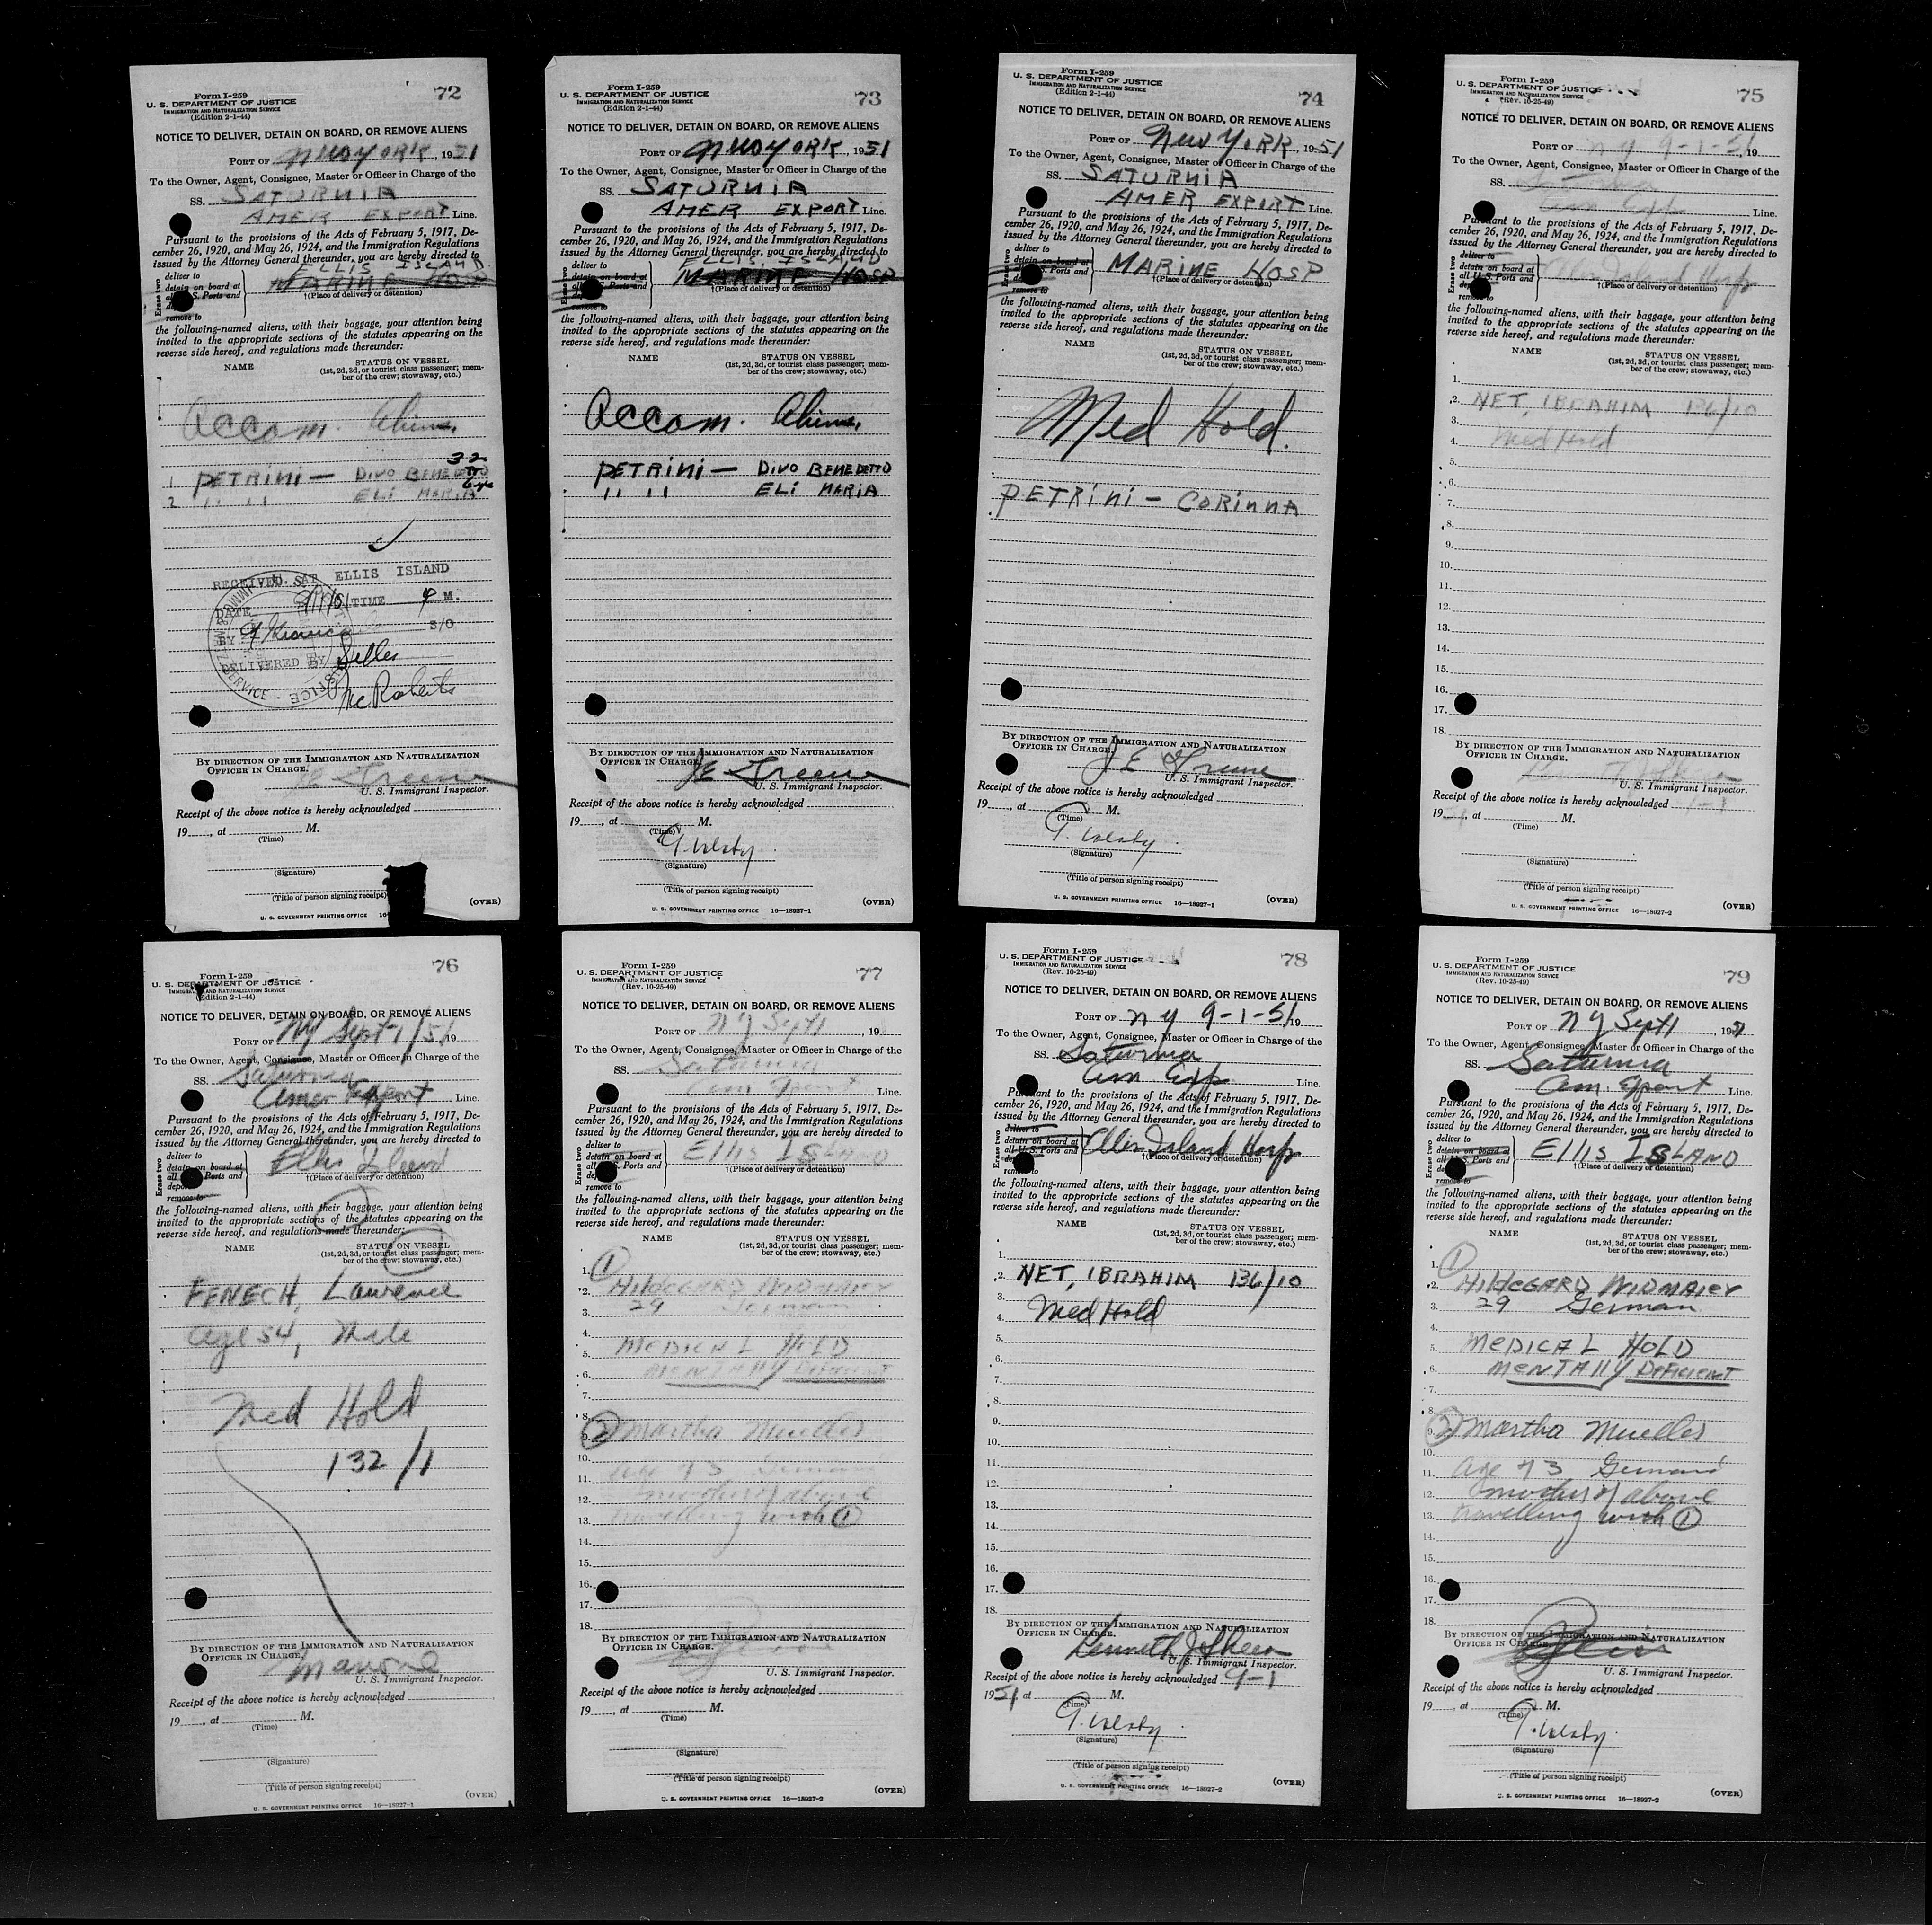 72
Form I-259
U. S. DEPARTMENT OF JUSTICE
IMMIGRATION AND NATURALIZATION SERVICE
(Edition 2-1-44)
NOTICE TO DELIVER, DETAIN ON BOARD, OR REMOVE ALIENS
PORT OF New YORK, 1951
To the Owner, Agent, Consignee, Master or Officer in Charge of the
SS. SATURNIA
AMER EXPORT Line.
Pursuant to the provisions of the Acts of February 5, 1917, De-
cember 26, 1920, and May 26, 1924, and the Immigration Regulations
issued by the Attorney General thereunder, you are hereby directed to
ELLIS ISLAND
deliver to
detain on board at MARINE HOSP
all U. S. Ports and †(Place of delivery or detention)
remove to
Erase two
the following-named aliens, with their baggage, your attention being
invited to the appropriate sections of the statutes appearing on the
reverse side hereof, and regulations made thereunder:
NAME STATUS ON VESSEL
(1st, 2d, 3d, or tourist class passenger; mem-
ber of the crew; stowaway, etc.)
Accom. Aliens,
32
1 PETRINI — DIVO BENEDETTO
2 " " ELI MARIA
RECEIVED AT ELLIS ISLAND
DATE TIME 4 P M.
BY S/O
DELIVERED BY
McRoberts
BY DIRECTION OF THE IMMIGRATION AND NATURALIZATION
OFFICER IN CHARGE.
JE Greene
U. S. Immigrant Inspector.
Receipt of the above notice is hereby acknowledged
19, at M.
(Time)
(Signature)
(Title of person signing receipt)
(OVER)
U. S. GOVERNMENT PRINTING OFFICE 16
73
Form I-259
U. S. DEPARTMENT OF JUSTICE
IMMIGRATION AND NATURALIZATION SERVICE
(Edition 2-1-44)
NOTICE TO DELIVER, DETAIN ON BOARD, OR REMOVE ALIENS
PORT OF New YORK, 1951
To the Owner, Agent, Consignee, Master or Officer in Charge of the
SS. SATURNIA
AMER EXPORT Line.
Pursuant to the provisions of the Acts of February 5, 1917, De-
cember 26, 1920, and May 26, 1924, and the Immigration Regulations
issued by the Attorney General thereunder, you are hereby directed to
ELLIS ISLAND
deliver to
detain on board at MARINE HOSP
all U. S. Ports and †(Place of delivery or detention)
remove to
Erase two
the following-named aliens, with their baggage, your attention being
invited to the appropriate sections of the statutes appearing on the
reverse side hereof, and regulations made thereunder:
NAME STATUS ON VESSEL
(1st, 2d, 3d, or tourist class passenger; mem-
ber of the crew; stowaway, etc.)
Accom. Aliens,
PETRINI — DIVO BENEDETTO
" " ELI MARIA
BY DIRECTION OF THE IMMIGRATION AND NATURALIZATION
OFFICER IN CHARGE.
JE Greene
U. S. Immigrant Inspector.
Receipt of the above notice is hereby acknowledged
19, at M.
(Time)
(Signature)
(Title of person signing receipt)
(OVER)
U. S. GOVERNMENT PRINTING OFFICE 16—18927-1
74
Form I-259
U. S. DEPARTMENT OF JUSTICE
IMMIGRATION AND NATURALIZATION SERVICE
(Edition 2-1-44)
NOTICE TO DELIVER, DETAIN ON BOARD, OR REMOVE ALIENS
PORT OF New YORK, 1951
To the Owner, Agent, Consignee, Master or Officer in Charge of the
SS. SATURNIA
AMER EXPORT Line.
Pursuant to the provisions of the Acts of February 5, 1917, De-
cember 26, 1920, and May 26, 1924, and the Immigration Regulations
issued by the Attorney General thereunder, you are hereby directed to
deliver to
detain on board at MARINE HOSP
U. S. Ports and †(Place of delivery or detention)
remove to
Erase two
the following-named aliens, with their baggage, your attention being
invited to the appropriate sections of the statutes appearing on the
reverse side hereof, and regulations made thereunder:
NAME STATUS ON VESSEL
(1st, 2d, 3d, or tourist class passenger; mem-
ber of the crew; stowaway, etc.)
Med Hold.
PETRINI — CORINNA
BY DIRECTION OF THE IMMIGRATION AND NATURALIZATION
OFFICER IN CHARGE.
JE Greene
U. S. Immigrant Inspector.
Receipt of the above notice is hereby acknowledged
19, at M.
(Time)
(Signature)
(Title of person signing receipt)
(OVER)
U. S. GOVERNMENT PRINTING OFFICE 16—18927-1
75
Form I-259
U. S. DEPARTMENT OF JUSTICE
IMMIGRATION AND NATURALIZATION SERVICE
(Rev. 10-25-49)
NOTICE TO DELIVER, DETAIN ON BOARD, OR REMOVE ALIENS
PORT OF N Y 9-1-51 19
To the Owner, Agent, Consignee, Master or Officer in Charge of the
SS. Saturnia
Am Exp Line.
Pursuant to the provisions of the Acts of February 5, 1917, De-
cember 26, 1920, and May 26, 1924, and the Immigration Regulations
issued by the Attorney General thereunder, you are hereby directed to
deliver to
detain on board at Ellis Island Hosp
all U. S. Ports and †(Place of delivery or detention)
remove to
Erase two
the following-named aliens, with their baggage, your attention being
invited to the appropriate sections of the statutes appearing on the
reverse side hereof, and regulations made thereunder:
NAME STATUS ON VESSEL
(1st, 2d, 3d, or tourist class passenger; mem-
ber of the crew; stowaway, etc.)
1.
2. NET, IBRAHIM 136/10
3.
4. Med Hold
5.
6.
7.
8.
9.
10.
11.
12.
13.
14.
15.
16.
17.
18.
BY DIRECTION OF THE IMMIGRATION AND NATURALIZATION
OFFICER IN CHARGE.
U. S. Immigrant Inspector.
Receipt of the above notice is hereby acknowledged
19, at M.
(Time)
(Signature)
(Title of person signing receipt)
(OVER)
U. S. GOVERNMENT PRINTING OFFICE 16—18927-2
76
Form I-259
U. S. DEPARTMENT OF JUSTICE
IMMIGRATION AND NATURALIZATION SERVICE
(Edition 2-1-44)
NOTICE TO DELIVER, DETAIN ON BOARD, OR REMOVE ALIENS
PORT OF NY Sept 1/51 19
To the Owner, Agent, Consignee, Master or Officer in Charge of the
SS. Saturnia
Amer Export Line.
Pursuant to the provisions of the Acts of February 5, 1917, De-
cember 26, 1920, and May 26, 1924, and the Immigration Regulations
issued by the Attorney General thereunder, you are hereby directed to
deliver to
detain on board at Ellis Island
all U. S. Ports and †(Place of delivery or detention)
remove to
Erase two
the following-named aliens, with their baggage, your attention being
invited to the appropriate sections of the statutes appearing on the
reverse side hereof, and regulations made thereunder:
NAME STATUS ON VESSEL
(1st, 2d, 3d, or tourist class passenger; mem-
ber of the crew; stowaway, etc.)
FENECH, Lawrence
age 54, Male
Med Hold
132/1
BY DIRECTION OF THE IMMIGRATION AND NATURALIZATION
OFFICER IN CHARGE.
U. S. Immigrant Inspector.
Receipt of the above notice is hereby acknowledged
19, at M.
(Time)
(Signature)
(Title of person signing receipt)
(OVER)
U. S. GOVERNMENT PRINTING OFFICE 16—18927-1
77
Form I-259
U. S. DEPARTMENT OF JUSTICE
IMMIGRATION AND NATURALIZATION SERVICE
(Rev. 10-25-49)
NOTICE TO DELIVER, DETAIN ON BOARD, OR REMOVE ALIENS
PORT OF N Y Sept 1, 19
To the Owner, Agent, Consignee, Master or Officer in Charge of the
SS. Saturnia
Am. Export Line.
Pursuant to the provisions of the Acts of February 5, 1917, De-
cember 26, 1920, and May 26, 1924, and the Immigration Regulations
issued by the Attorney General thereunder, you are hereby directed to
deliver to
detain on board at Ellis ISLAND
all U. S. Ports and †(Place of delivery or detention)
remove to
Erase two
the following-named aliens, with their baggage, your attention being
invited to the appropriate sections of the statutes appearing on the
reverse side hereof, and regulations made thereunder:
NAME STATUS ON VESSEL
(1st, 2d, 3d, or tourist class passenger; mem-
ber of the crew; stowaway, etc.)
1. 1
2. HildegARD WIDMAIER
3. 29 German
4.
5. MEDICAL HOLD
6. MENTAllY DEFICIENT
7.
8.
9. 2 Martha Mueller
10.
11. Age 73 German
12. mother of above
13. travelling with 1
14.
15.
16.
17.
18.
BY DIRECTION OF THE IMMIGRATION AND NATURALIZATION
OFFICER IN CHARGE.
U. S. Immigrant Inspector.
Receipt of the above notice is hereby acknowledged
19, at M.
(Time)
(Signature)
(Title of person signing receipt)
(OVER)
U. S. GOVERNMENT PRINTING OFFICE 16—18927-2
78
Form I-259
U. S. DEPARTMENT OF JUSTICE
IMMIGRATION AND NATURALIZATION SERVICE
(Rev. 10-25-49)
NOTICE TO DELIVER, DETAIN ON BOARD, OR REMOVE ALIENS
PORT OF N Y 9-1-51 19
To the Owner, Agent, Consignee, Master or Officer in Charge of the
SS. Saturnia
Am Exp Line.
Pursuant to the provisions of the Acts of February 5, 1917, De-
cember 26, 1920, and May 26, 1924, and the Immigration Regulations
issued by the Attorney General thereunder, you are hereby directed to
deliver to
detain on board at Ellis Island Hosp
all U. S. Ports and †(Place of delivery or detention)
remove to
Erase two
the following-named aliens, with their baggage, your attention being
invited to the appropriate sections of the statutes appearing on the
reverse side hereof, and regulations made thereunder:
NAME STATUS ON VESSEL
(1st, 2d, 3d, or tourist class passenger; mem-
ber of the crew; stowaway, etc.)
1.
2. NET, IBRAHIM 136/10
3.
4. Med Hold
5.
6.
7.
8.
9.
10.
11.
12.
13.
14.
15.
16.
17.
18.
BY DIRECTION OF THE IMMIGRATION AND NATURALIZATION
OFFICER IN CHARGE.
Kenneth J
U. S. Immigrant Inspector.
Receipt of the above notice is hereby acknowledged 9-1
1951 at M.
(Time)
(Signature)
(Title of person signing receipt)
(OVER)
U. S. GOVERNMENT PRINTING OFFICE 16—18927-2
79
Form I-259
U. S. DEPARTMENT OF JUSTICE
IMMIGRATION AND NATURALIZATION SERVICE
(Rev. 10-25-49)
NOTICE TO DELIVER, DETAIN ON BOARD, OR REMOVE ALIENS
PORT OF N Y Sept 1 19
To the Owner, Agent, Consignee, Master or Officer in Charge of the
SS. Saturnia
Am. Export Line.
Pursuant to the provisions of the Acts of February 5, 1917, De-
cember 26, 1920, and May 26, 1924, and the Immigration Regulations
issued by the Attorney General thereunder, you are hereby directed to
deliver to
detain on board at Ellis ISLAND
all U. S. Ports and †(Place of delivery or detention)
remove to
Erase two
the following-named aliens, with their baggage, your attention being
invited to the appropriate sections of the statutes appearing on the
reverse side hereof, and regulations made thereunder:
NAME STATUS ON VESSEL
(1st, 2d, 3d, or tourist class passenger; mem-
ber of the crew; stowaway, etc.)
1. 1
2. HildegARD WIDMAIER
3. 29 German
4.
5. MEDICAL HOLD
6. MENTAllY DEFICIENT
7.
8.
9. 2 Martha Mueller
10.
11. Age 73 German
12. mother of above
13. travelling with 1
14.
15.
16.
17.
18.
BY DIRECTION OF THE IMMIGRATION AND NATURALIZATION
OFFICER IN CHARGE.
U. S. Immigrant Inspector.
Receipt of the above notice is hereby acknowledged
19, at M.
(Time)
(Signature)
(Title of person signing receipt)
(OVER)
U. S. GOVERNMENT PRINTING OFFICE 16—18927-2